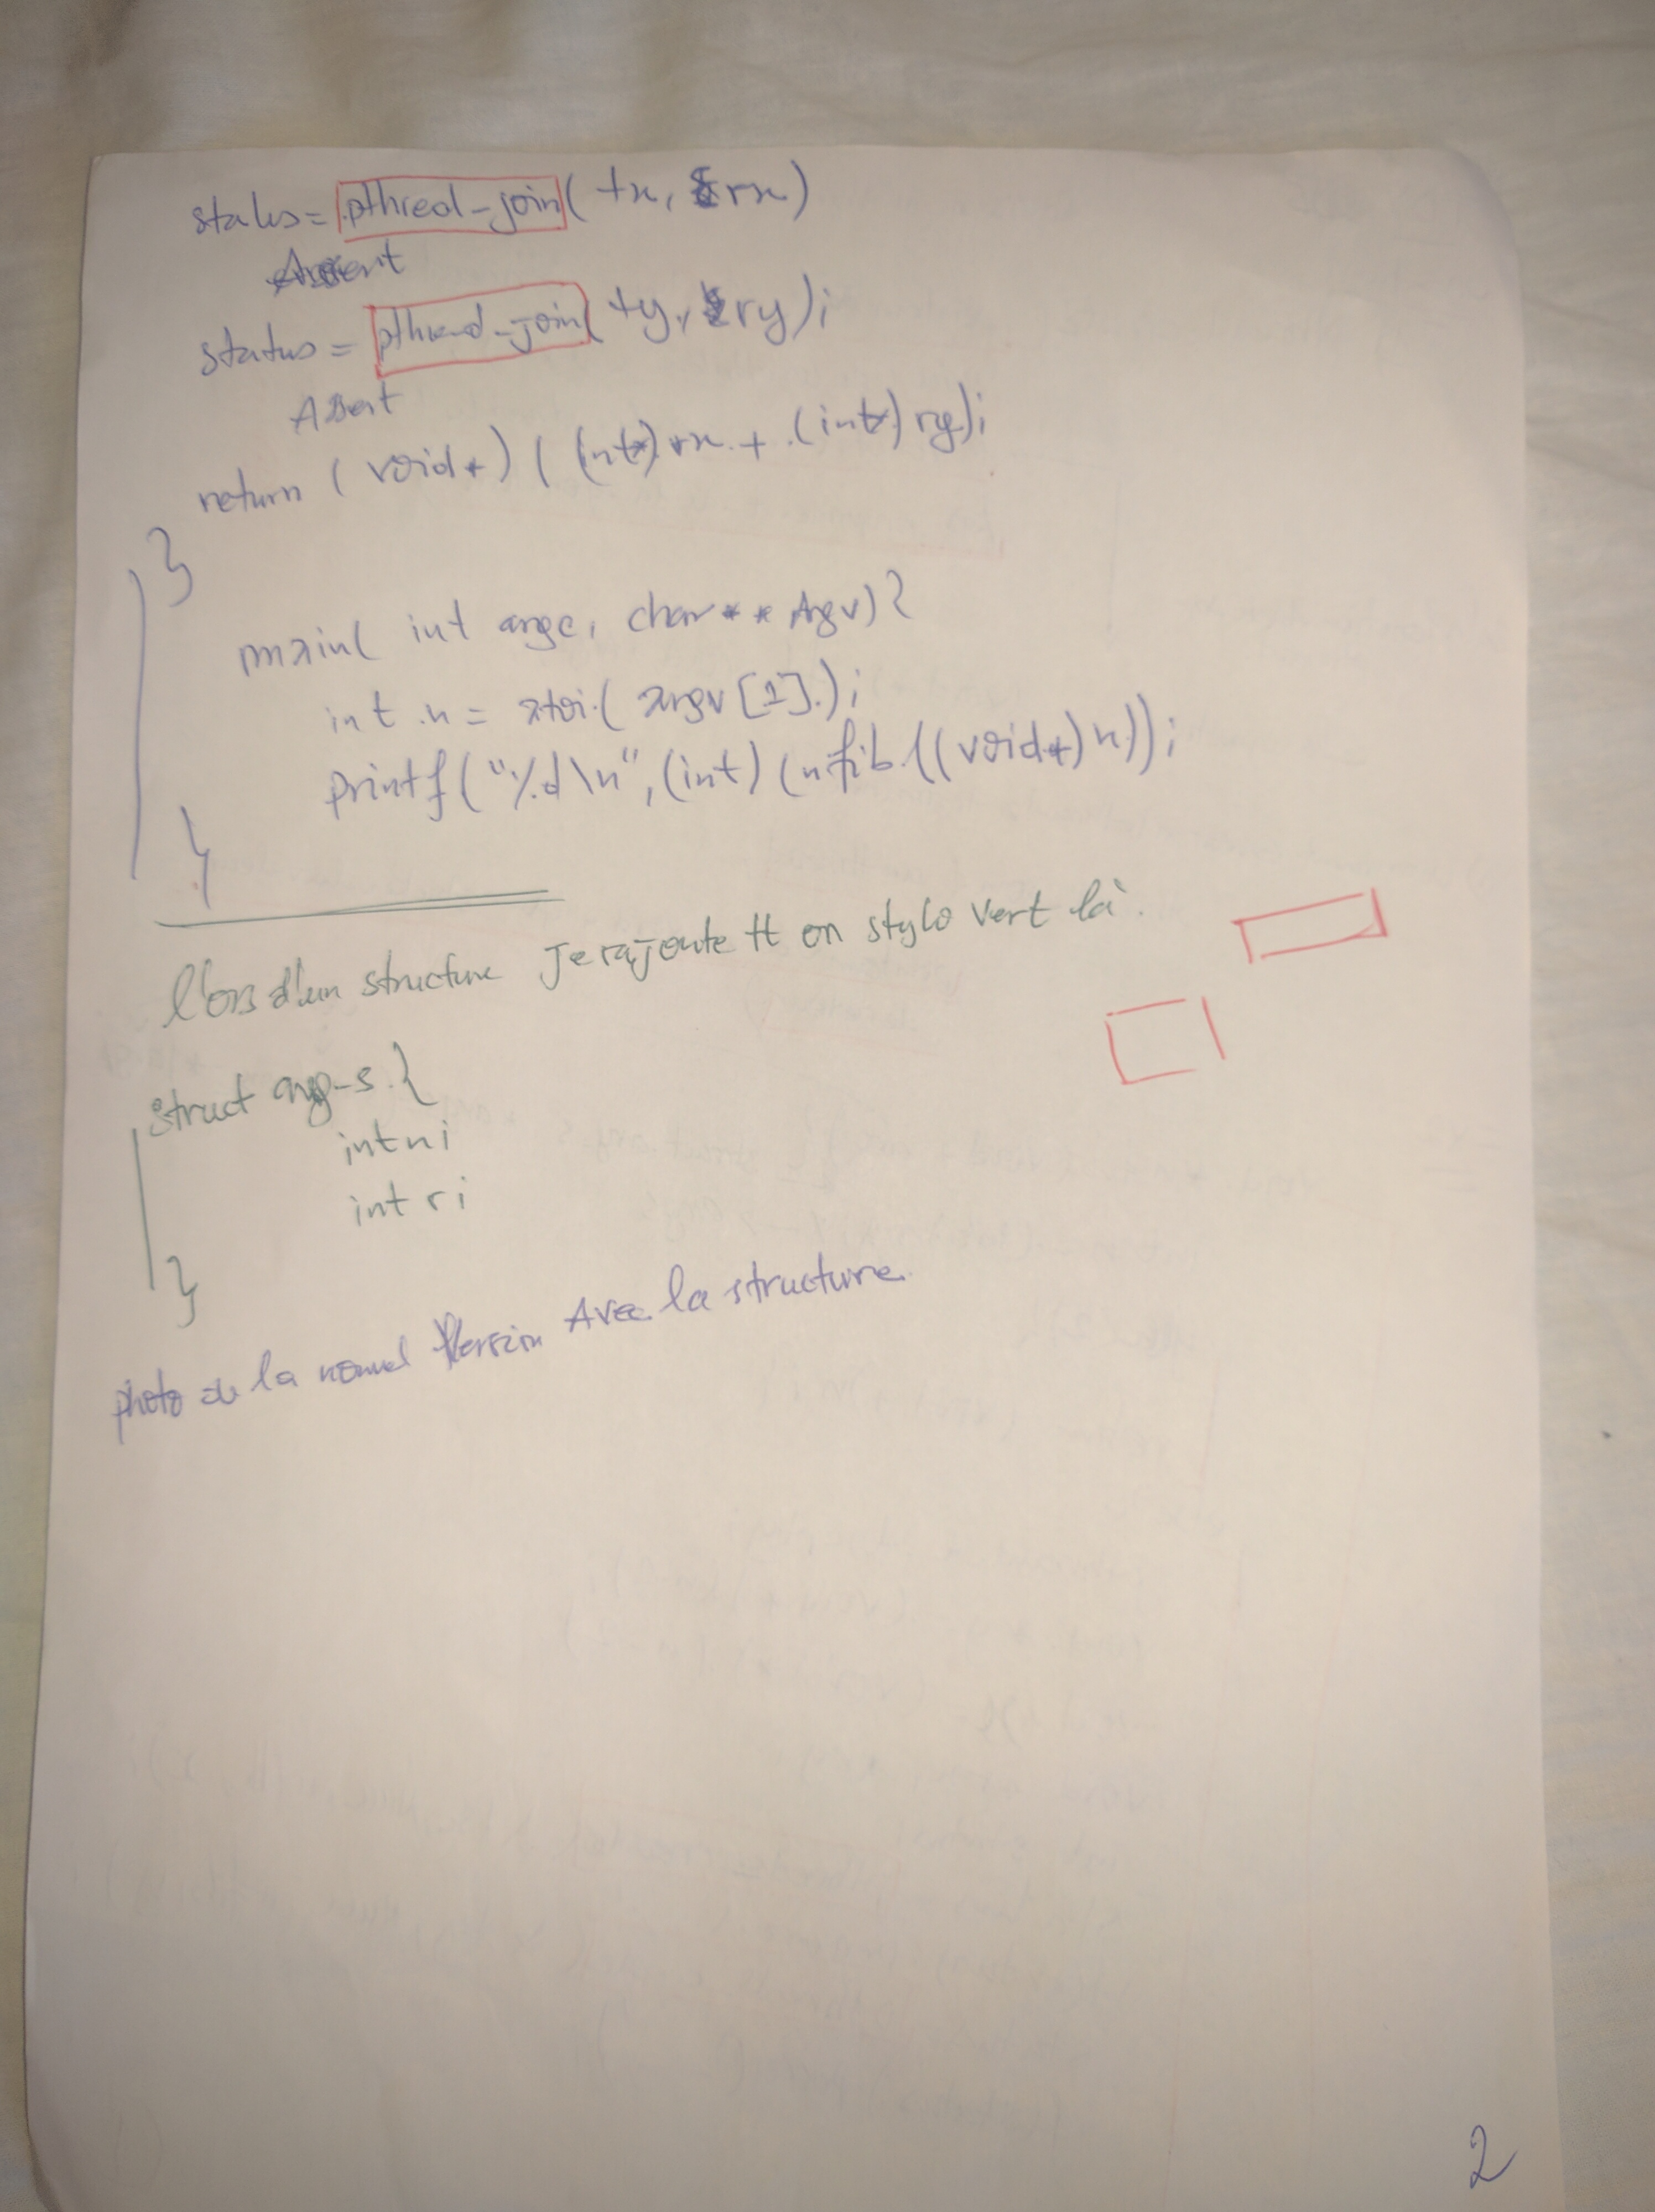 status = pthread_join( tx, &rx)
Assert
status = pthread_join( ty, &ry);
Assert
return (void*) ( (int*) rx + (int*) ry);
}
main( int argc, char** Argv) {
int n = atoi( argv [1]);
printf("%d\n", (int) (nfib ((void*) n));
}
lors d'un structure Je rajoute tt en stylo vert là.
struct arg_s {
int n;
int r;
}
photo de la nouvel Version Avec la structure.
2